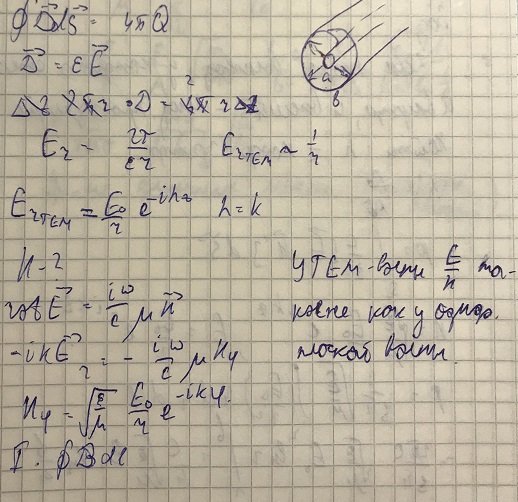 ∮ D⃗ dS⃗ = 4πQ
a
b
D⃗ = εE⃗
2πr · D = 4π
E_r = 2τ/εr    E_rTEM ~ 1/r
E_rTEM = E₀/r e^(-ihz)    h = k
H - ?
rot E⃗ = iω/c μH⃗
-ikE_r = - iω/c μH_φ
H_φ = √(ε/μ) E₀/r e^(-ikz)
I. ∮ B dl
У ТЕМ-волн E/H та-
кое же как у однор.
плоской волн.